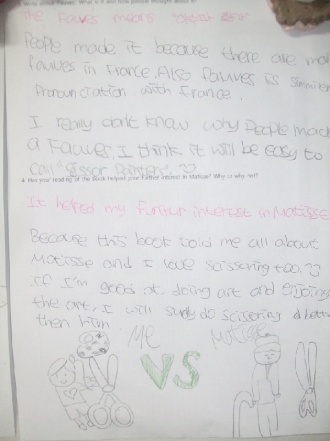 The Fauves means
People made it because there are mor
fauves in France. Also fauves is simmiler
Pronounciation with France.
I really don't know why People made
a Fauves. I think it will be easy to
call "Sissor Painters"
4. Has your reading of the book helped your further interest in Matisse? Why or why not?
It helped my furtur interest in Matisse
Because this book told me all about
Matisse and I love scissering too.
if I'm good at doing art and enjoying
the art, I will do scissering a better
then him
Me
Matisse
VS